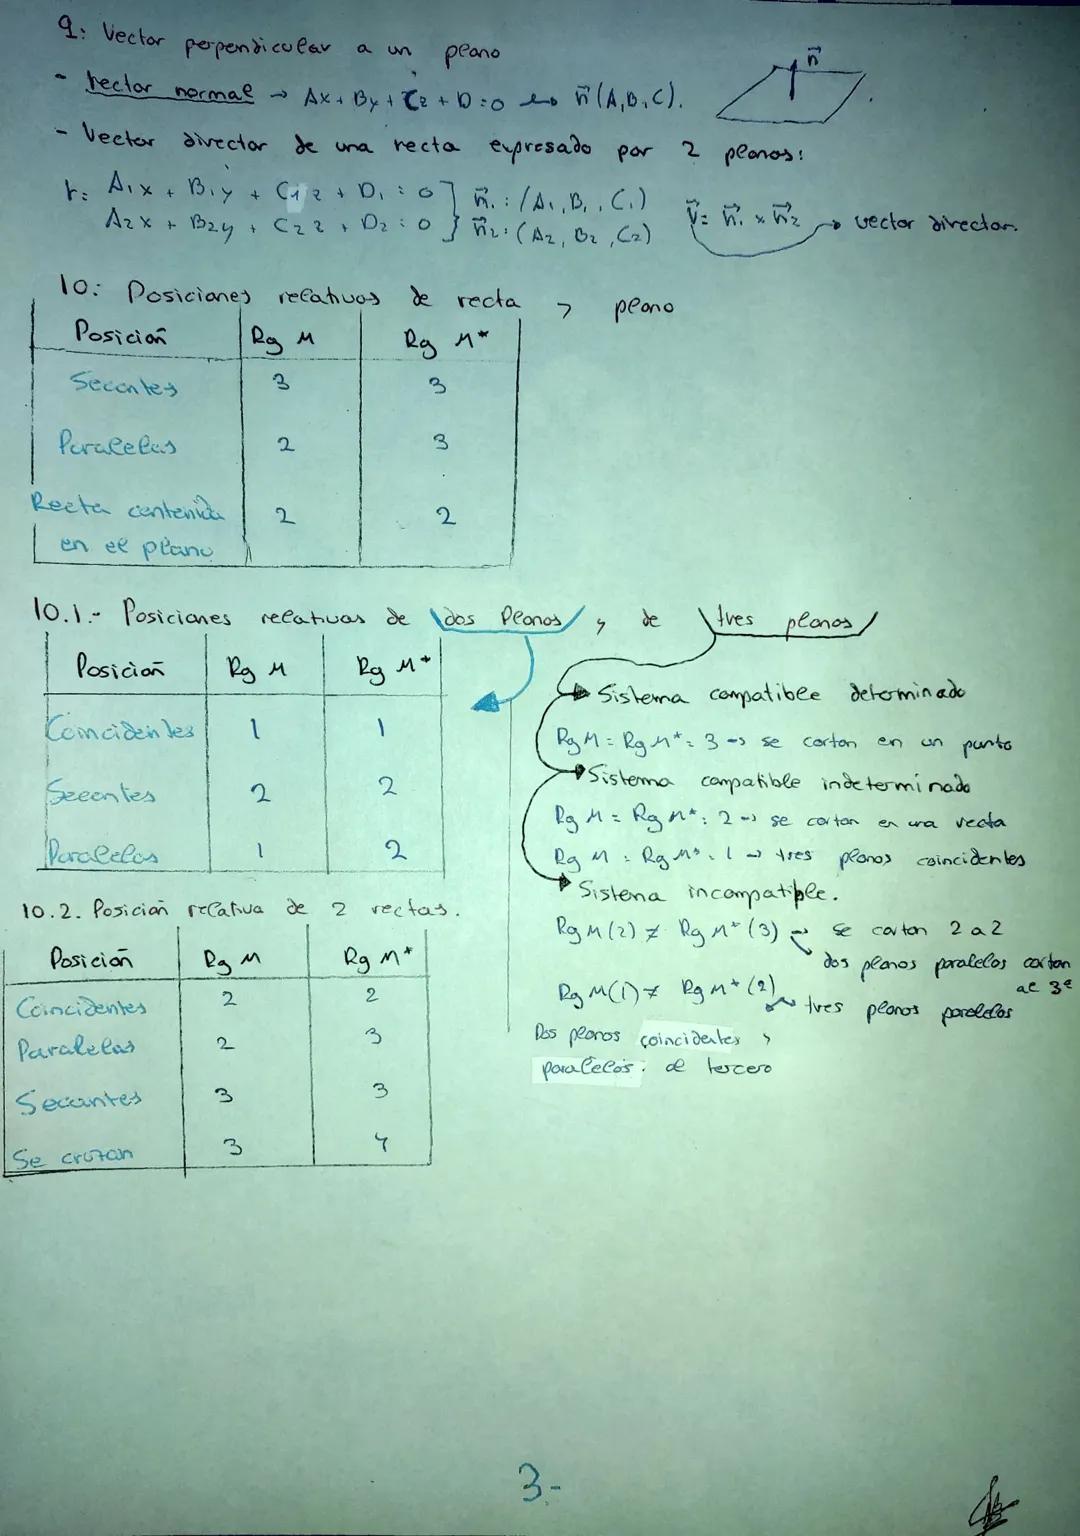 9: Vector perpendicular a un plano
- Vector normal → Ax + By + Cz + D = 0 → n⃗ (A, B, C).
n⃗
- Vector director de una recta expresado por 2 planos:
r: A₁x + B₁y + C₁z + D₁ = 0 } n⃗₁: (A₁, B₁, C₁)
A₂x + B₂y + C₂z + D₂ = 0 } n⃗₂: (A₂, B₂, C₂)
V⃗ = n⃗₁ × n⃗₂ → vector director.
10: Posiciones relativas de recta y plano
Posición Rg M Rg M*
Secantes 3 3
Paralelas 2 3
Recta contenida en el plano 2 2
10.1.- Posiciones relativas de dos Planos y de tres planos
Posición Rg M Rg M*
Coincidentes 1 1
Secantes 2 2
Paralelos 1 2
Sistema compatible determinado
Rg M = Rg M* = 3 → se cortan en un punto
Sistema compatible indeterminado
Rg M = Rg M* = 2 → se cortan en una recta
Rg M = Rg M* = 1 → tres planos coincidentes
Sistema incompatible.
Rg M (2) ≠ Rg M* (3) → se cortan 2 a 2
dos planos paralelos cortan al 3º
Rg M (1) ≠ Rg M* (2) → tres planos paralelos
Dos planos coincidentes y
paralelos al tercero
10.2. Posición relativa de 2 rectas.
Posición Rg M Rg M*
Coincidentes 2 2
Paralelas 2 3
Secantes 3 3
Se cruzan 3 4
3.-